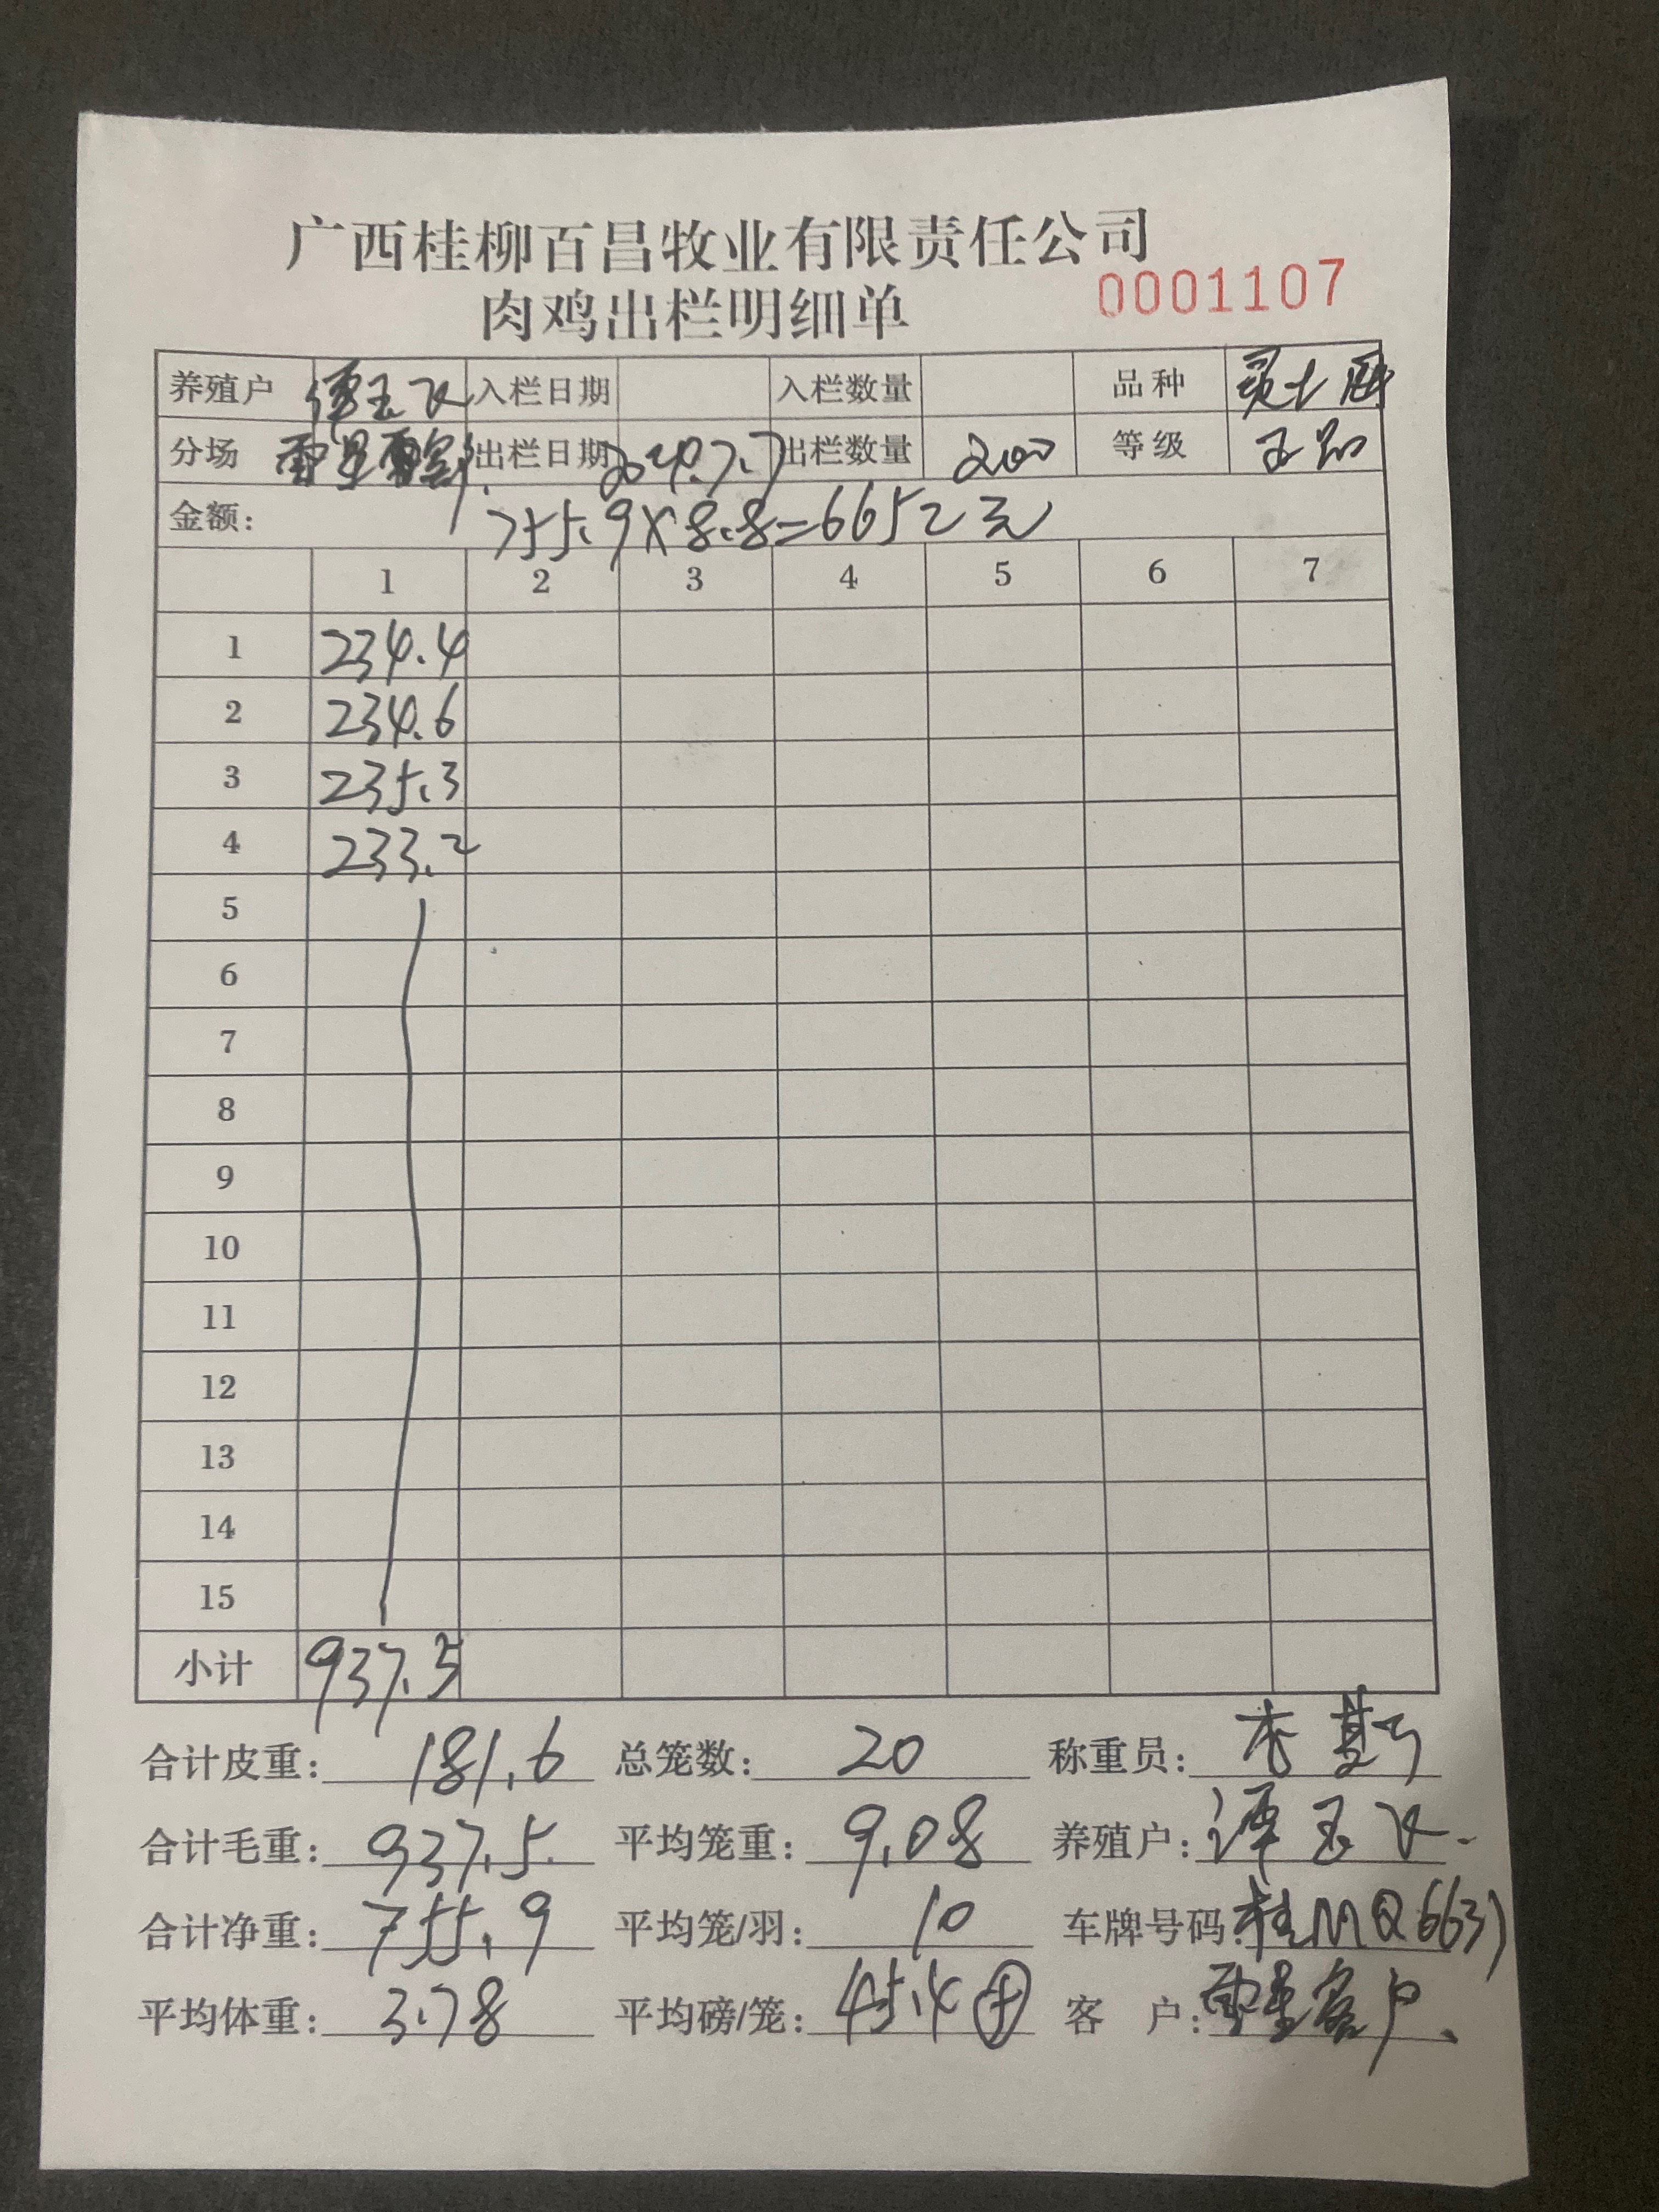 广西桂柳百昌牧业有限责任公司
肉鸡出栏明细单 0001107
养殖户 谭玉飞 入栏日期 入栏数量 品种
分场 出栏日期 出栏数量 200 等级
金额: 755.9×8.8=6652元
1 2 3 4 5 6 7
1 234.4
2 234.6
3 235.3
4 233.2
5
6
7
8
9
10
11
12
13
14
15
小计 937.5
合计皮重: 181.6 总笼数: 20 称重员:
合计毛重: 937.5 平均笼重: 9.08 养殖户: 谭玉飞
合计净重: 755.9 平均笼/羽: 10 车牌号码: 桂MQ6631
平均体重: 3.78 平均磅/笼: 45.4 客 户: 客户